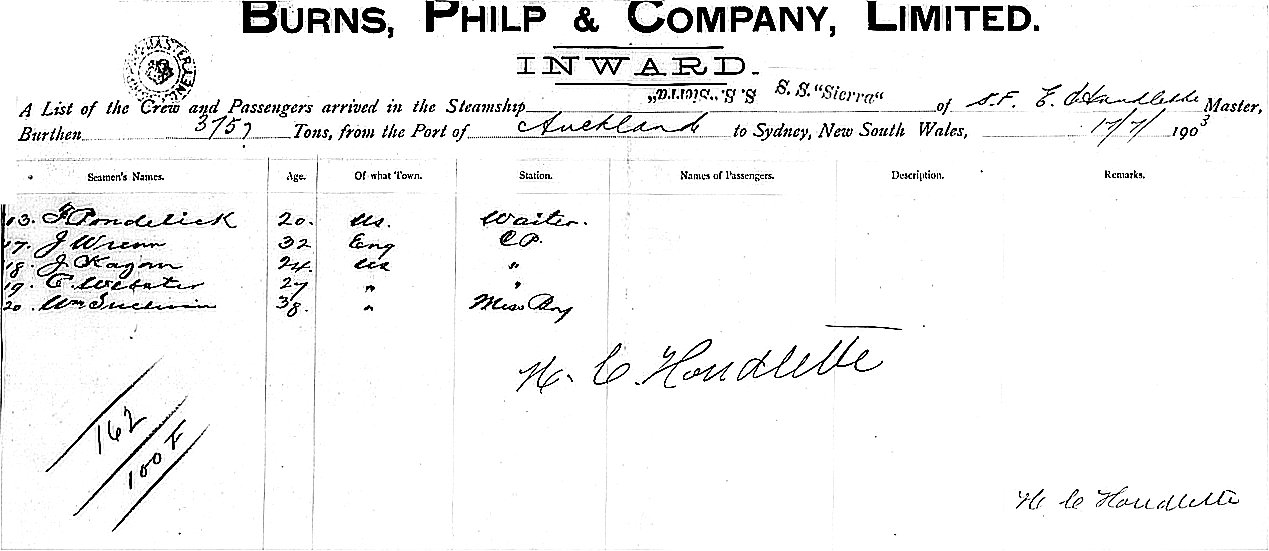 BURNS, PHILP & COMPANY, LIMITED.
INWARD.
A List of the Crew and Passengers arrived in the Steamship S.S. "Sierra" S.S. "Sierra" of S.F. Master,
Burthen 3757 Tons, from the Port of Auckland to Sydney, New South Wales, 17/7/ 1903
Seamen's Names. Age. Of what Town. Station. Names of Passengers. Description. Remarks.
20. US. Waiter.
17. J Wrenn 32 Eng C.P.
18. J Kagan 24. US "
19. C. Webster 27 " "
20. Wm 38. " Mess Boy
H. C. Houdlette
162
100 F
H C Houdlette